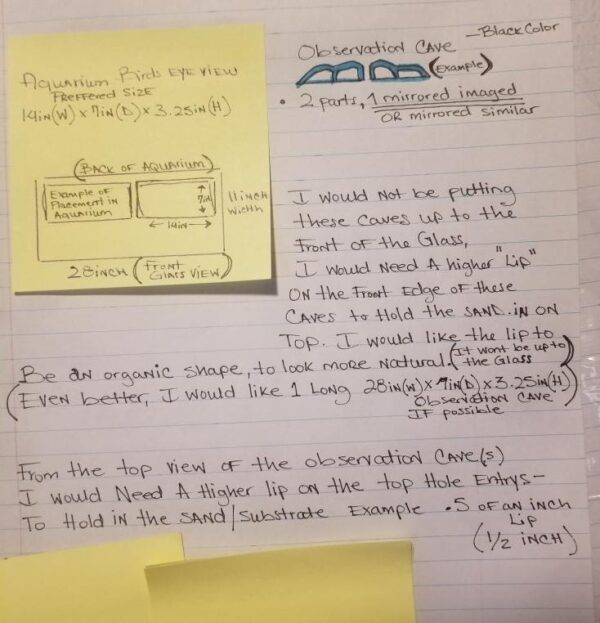 Aquarium Birds EYE VIEW
PREFFERED SIZE
14in(W) x 7in(D) x 3.25in(H)
(BACK OF AQUARIUM)
Example of
Placement in
Aquarium
7in
14in
11inch
width
28inch (FRONT
Glass VIEW)
-Black Color
Observation CAVE
(Example)
• 2 parts, 1 mirrored imaged
OR mirrored similar
I would Not be putting
these caves up to the
Front of the Glass,
I would Need A higher "Lip"
ON the Front Edge of these
CAVES to Hold the SAND.in ON
Top. I would like the lip to
Be an organic shape, to look more Natural. (It wont be up to
the Glass)
(Even better, I would like 1 Long 28in(W) x 7in(D) x 3.25in(H)
Observation CAVE
IF possible)
From the top view of the observation CAVE(s)
I would Need A Higher lip on the top Hole Entrys-
To Hold in the SAND/Substrate Example .5 of an inch
Lip
(1/2 inch)